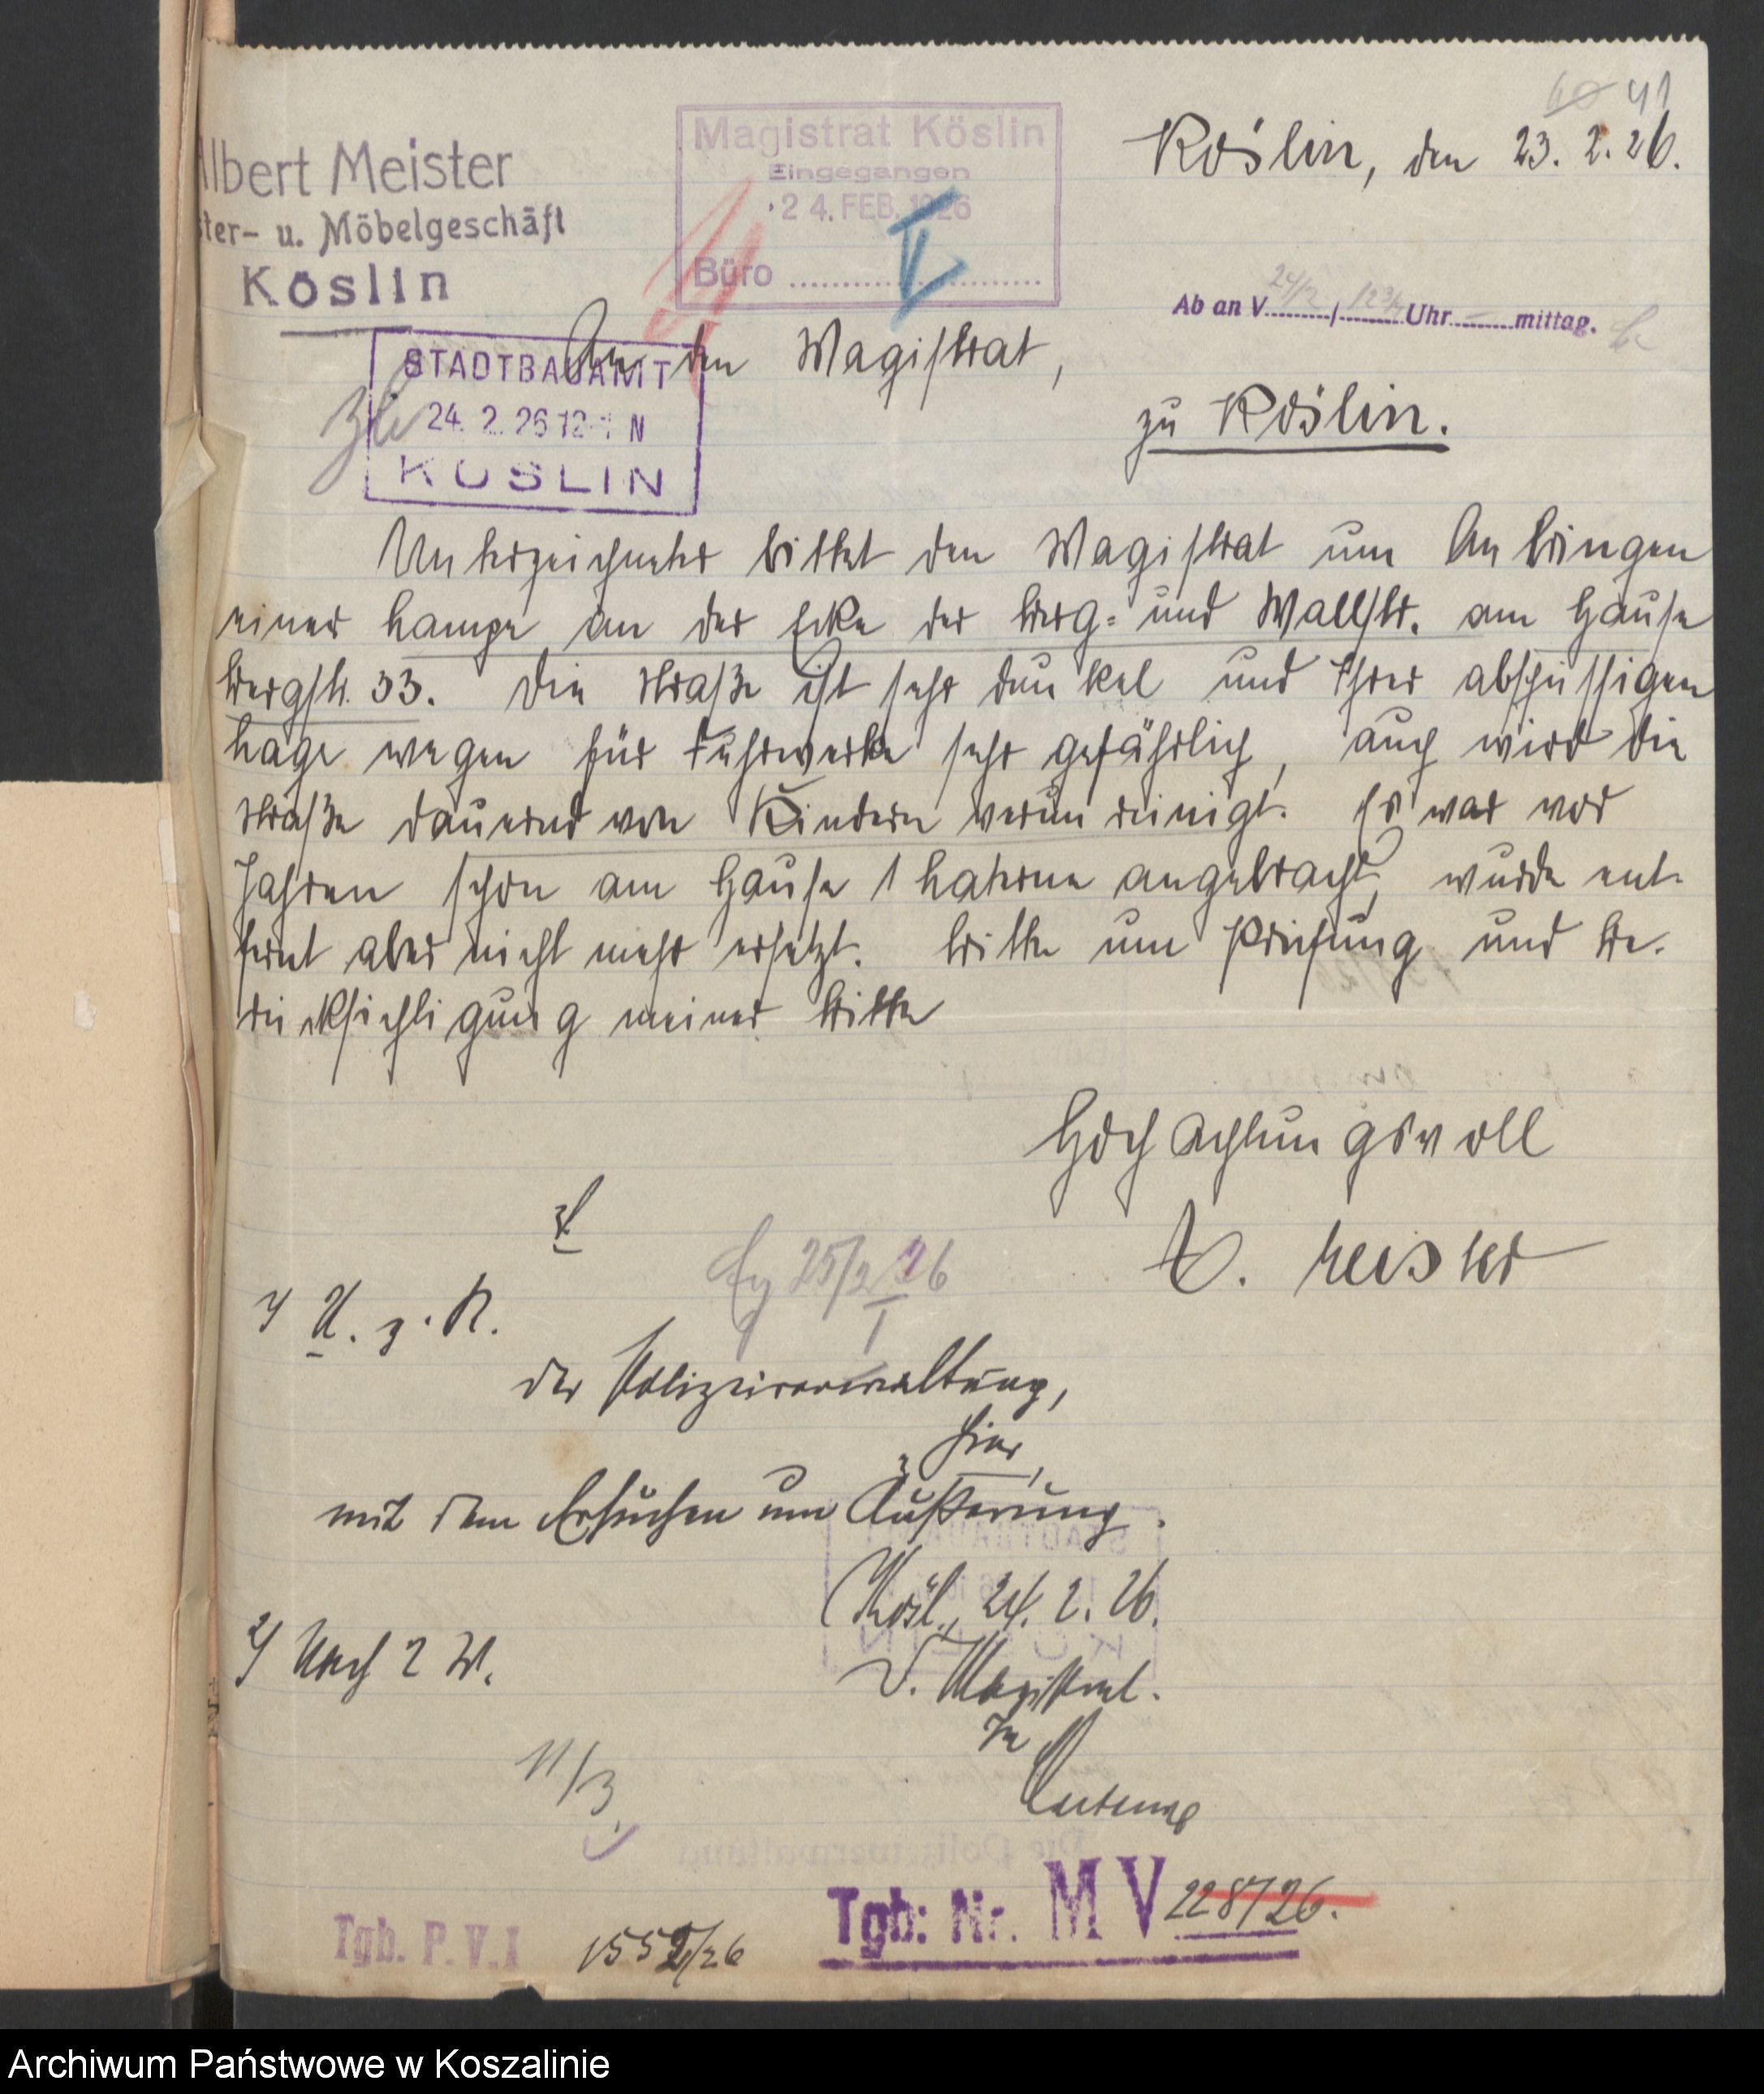 60 41
Köslin, den 23. 2. 26.
lbert Meister
ter- u. Möbelgeschäft
Köslin
Magistrat Köslin
Eingegangen
24. FEB. 1926
Büro
V
Ab an V. 24/2 / 12 3/4 Uhr - mittag.
An den Magistrat,
zu Köslin.
STADTBAUAMT
24. 2. 26 12-1 N
KÖSLIN
Unterzeichneter bittet den Magistrat um Anbringen
einer Lampe an der Ecke der Berg= und Wallstr. am Hause
Bergstr. 33. Die Straße ist sehr dunkel und Ihrer abschüssigen
Lage wegen für Fuhrwerke sehr gefährlich, auch wird die
Straße dauernd von Kindern verunreinigt. Es war vor
Jahren schon am Hause 1 Laterne angebracht, wurde ent-
fernt aber nicht mehr ersetzt. Bitte um Prüfung und Be-
rücksichtigung meiner Bitte
Hochachtungsvoll
A. Meister
25/2 26
1) U. z. R.
der Polizeiverwaltung,
hier,
mit dem Ersuchen um Äußerung.
Kösl., 24. 2. 26.
2) Nach 2 W.
D. Magistrat.
11/3.
Tgb. P. V. I 1552/26
Tgb: Nr. M V 228/26.
Archiwum Państwowe w Koszalinie